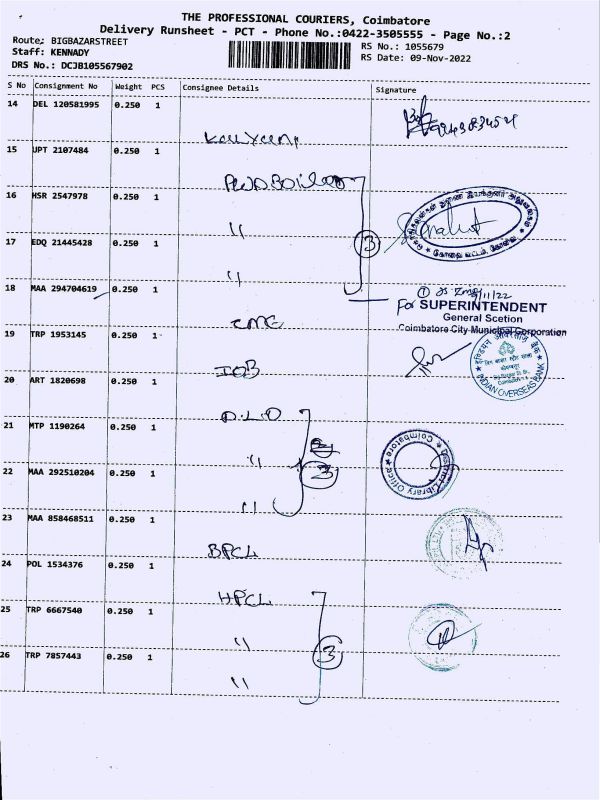 THE PROFESSIONAL COURIERS, Coimbatore
Delivery Runsheet - PCT - Phone No.:0422-3505555 - Page No.:2
Route: BIGBAZARSTREET
RS No.: 1055679
Staff: KENNADY
RS Date: 09-Nov-2022
DRS No.: DCJB105567902
S No Consignment No Weight PCS Consignee Details Signature
14 DEL 120581995 0.250 1
15 JPT 2107484 0.250 1
16 HSR 2547978 0.250 1
"
17 EDQ 21445428 0.250 1
3
"
18 MAA 294704619 0.250 1
For SUPERINTENDENT
General Scetion
CMC
Coimbatore City Municipal Corporation
19 TRP 1953145 0.250 1
IOB
INDIAN OVERSEAS BANK
20 ART 1820698 0.250 1
D.L.O
21 MTP 1190264 0.250 1
"
District Library Office Coimbatore
22 MAA 292510204 0.250 1
3
"
23 MAA 858468511 0.250 1
BPCL
24 POL 1534376 0.250 1
HPCL
25 TRP 6667540 0.250 1
"
3
26 TRP 7857443 0.250 1
"